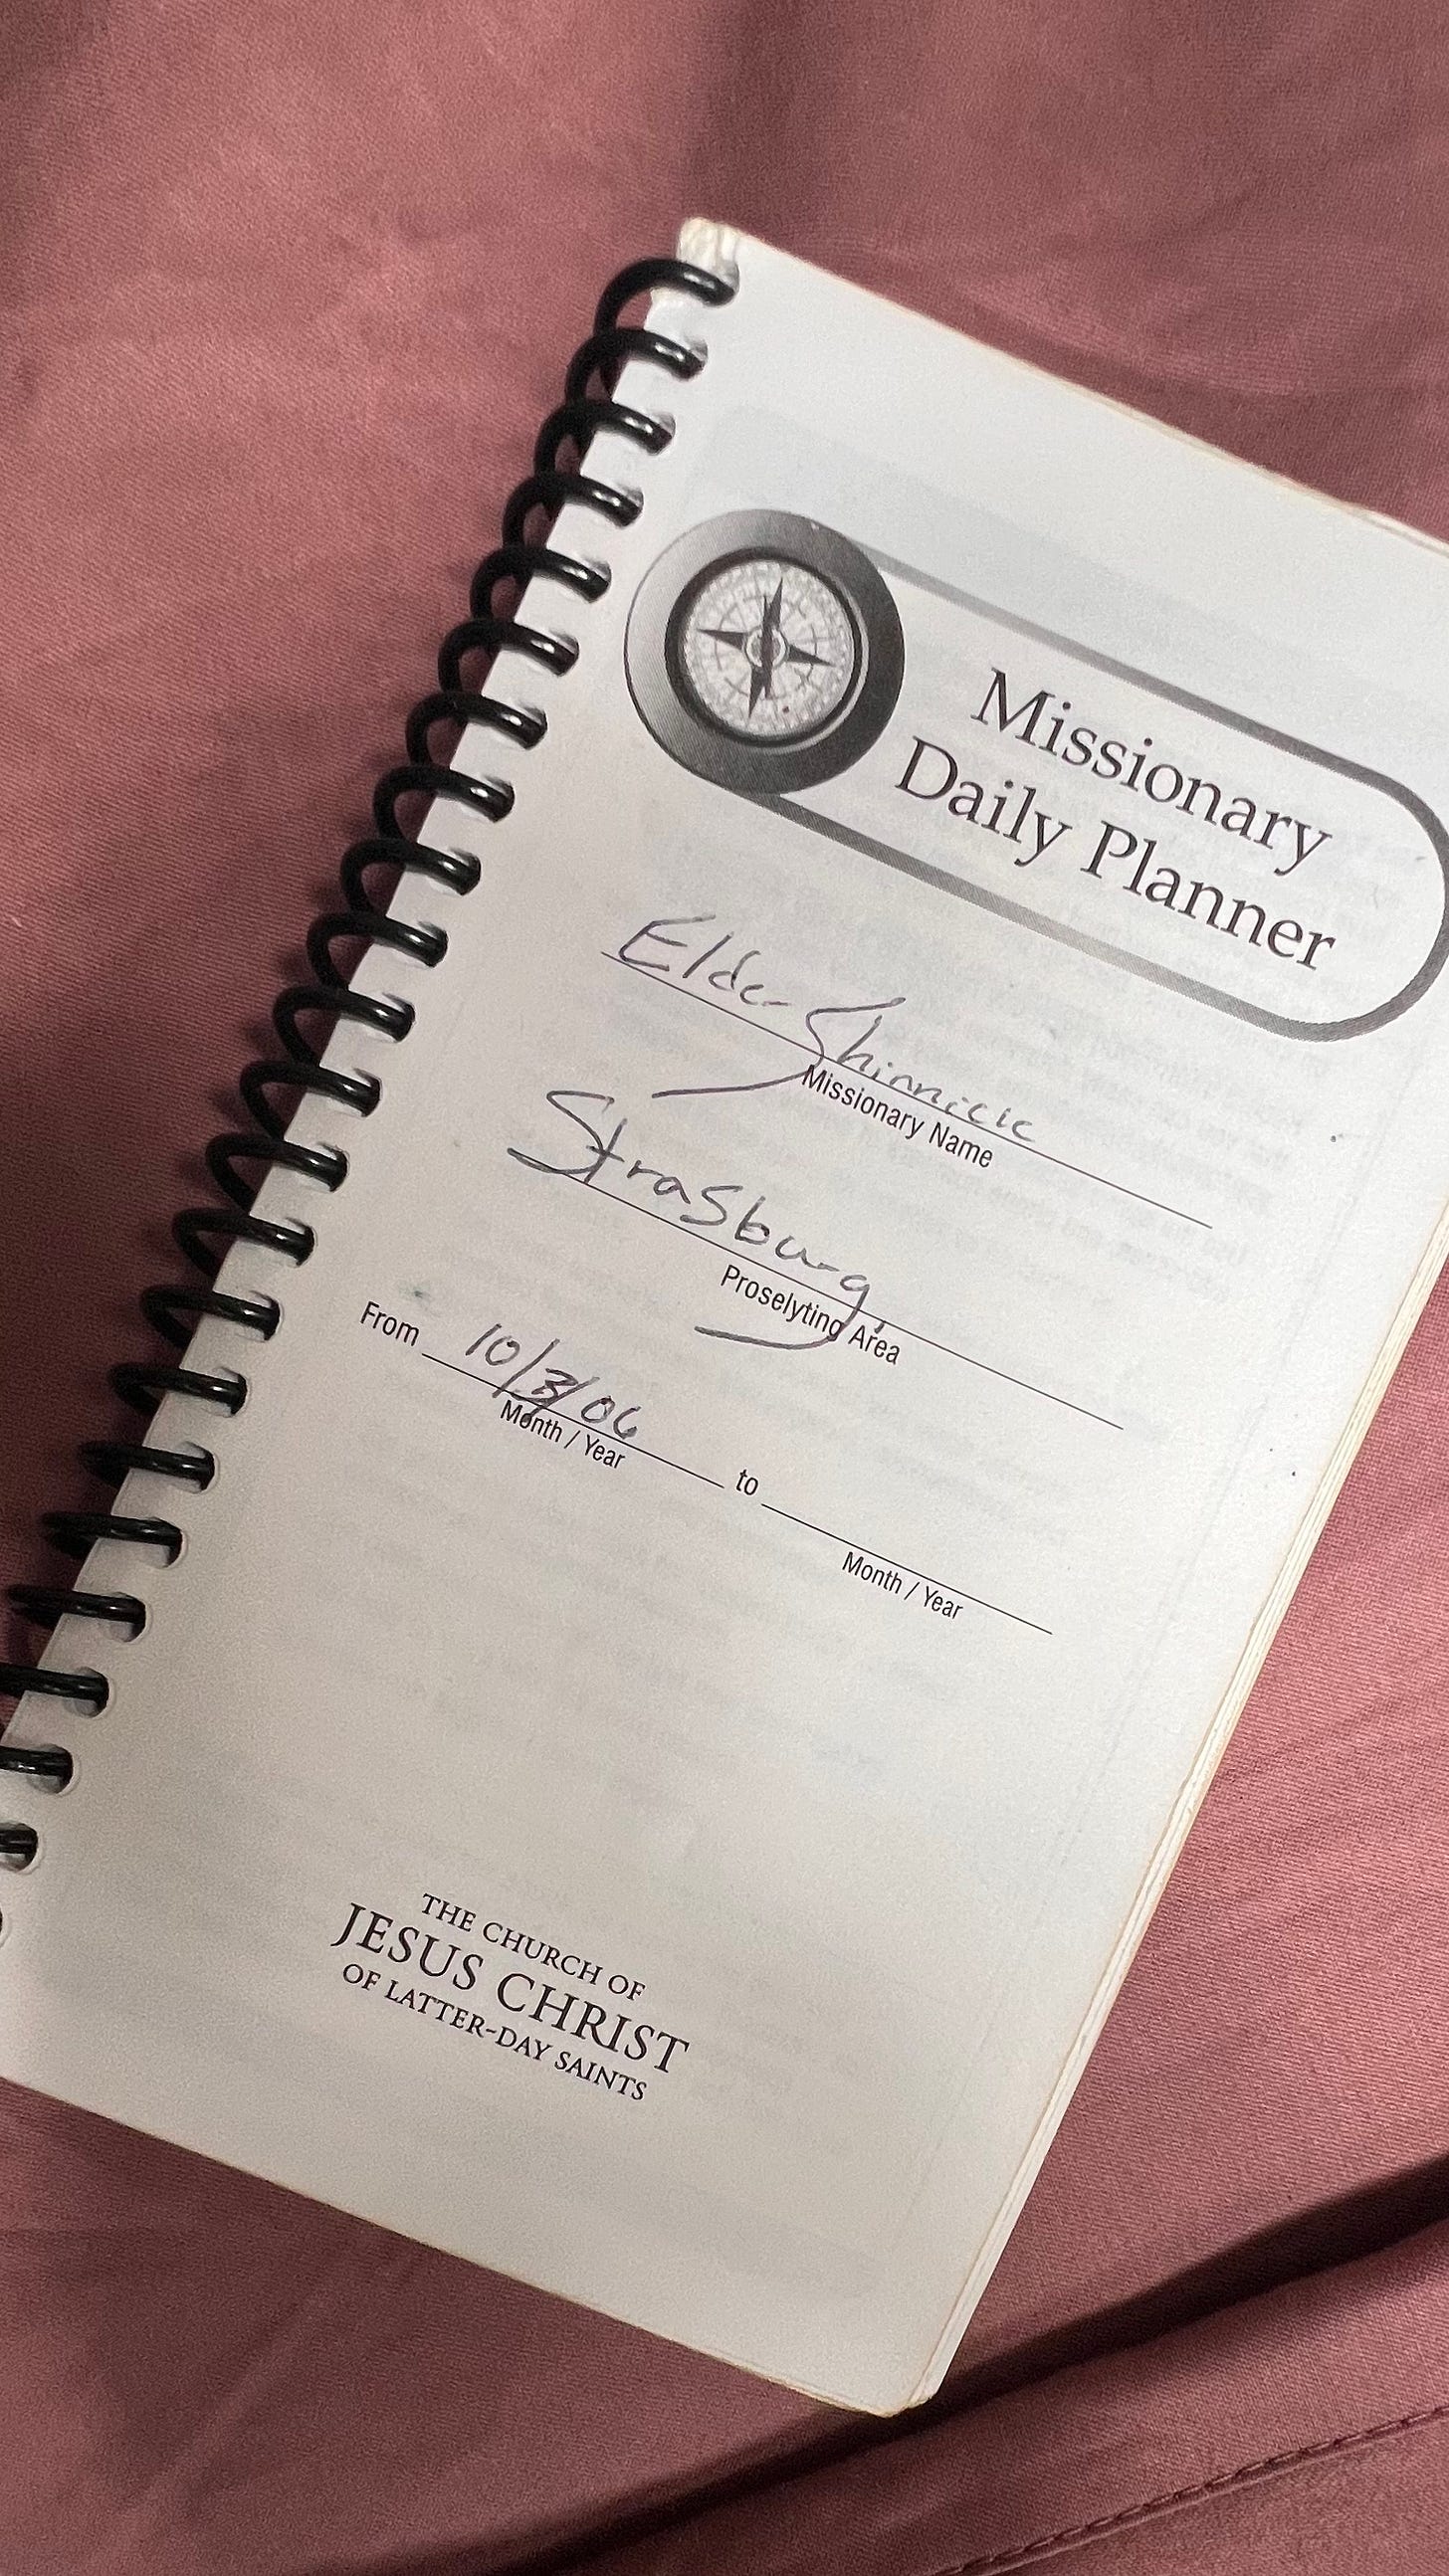 Missionary
Daily Planner
Elder Shinnick
Missionary Name
Strasburg
Proselyting Area
From 10/3/06 to
Month / Year
Month / Year
THE CHURCH OF
JESUS CHRIST
OF LATTER-DAY SAINTS